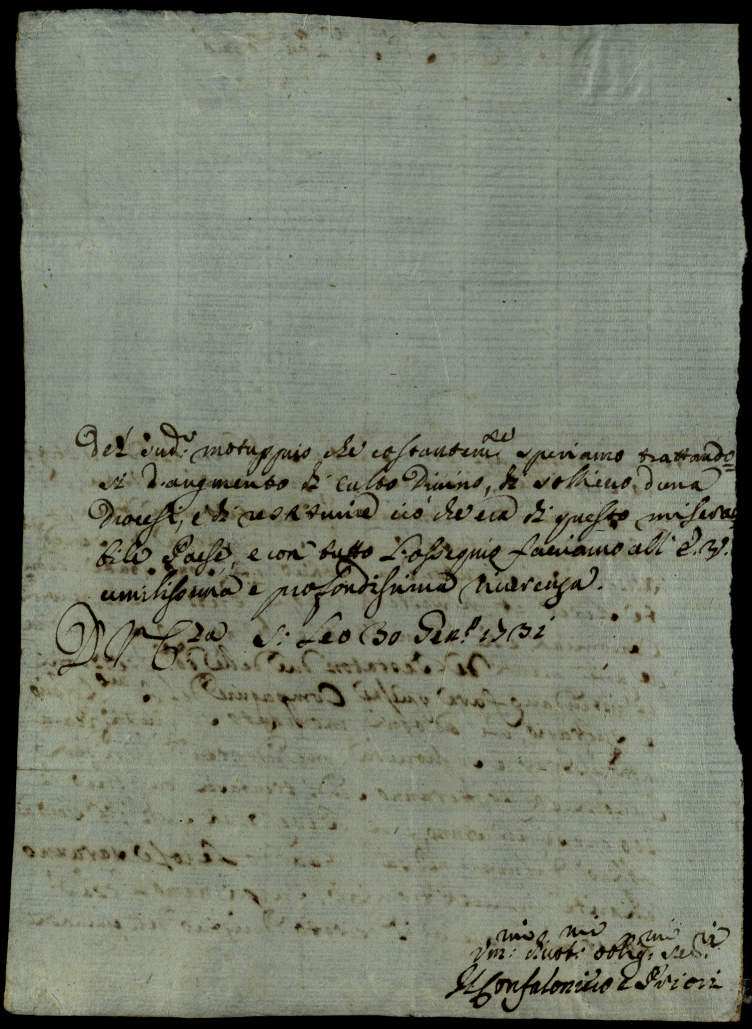 Del sud.º motuppio che costantem.te speriamo trattando=
si d'augmento di culto Divino, di sollievo d'una
Diocesi, e di restituire ciò che era di questo misera
bile Paese, e con tutto L'ossequio facciamo all' E. V.
umilissima e profondissima riverenza.
D. V. Eza S. Leo 30 Gen.º 1731
Um.mi Divot.mi oblig.mi Ser.ri
Il Confaloniero e Priori